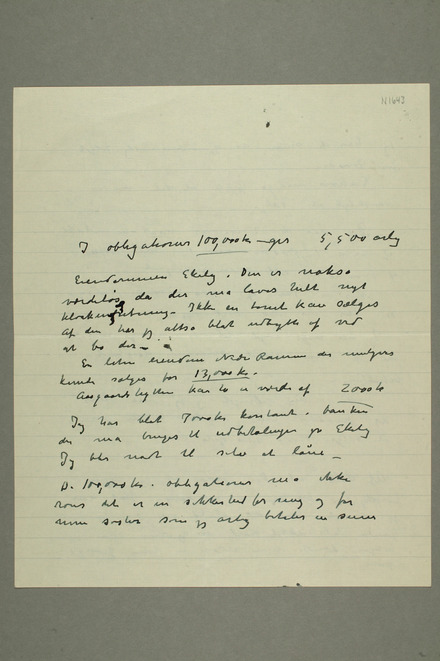 N 1643
I obligationer 100,000 kr – ger 5,500 årlig
Eiendommen Ekely. Den er nokså
værdiløs da der må laves helt nyt
kloakering – Ikke en tomt kan sælges
Af den har jeg altså blot udbytte af ved
at bo der –
En liten eiendom Nedre Ramme der muligens
kunde sælges for 13,000 kr.
Aasgaardshytten kan ha en værdi af 2000 kr
Jeg har blot 7000 kr kontant i banken
der må bruges til udbetalinger på Ekely
Jeg blir nødt til selv at låne –
De 100,000 kr. obligationer må ikke
røres det er en sikkerhed for mig og for
min søster som jeg årlig betaler en sum